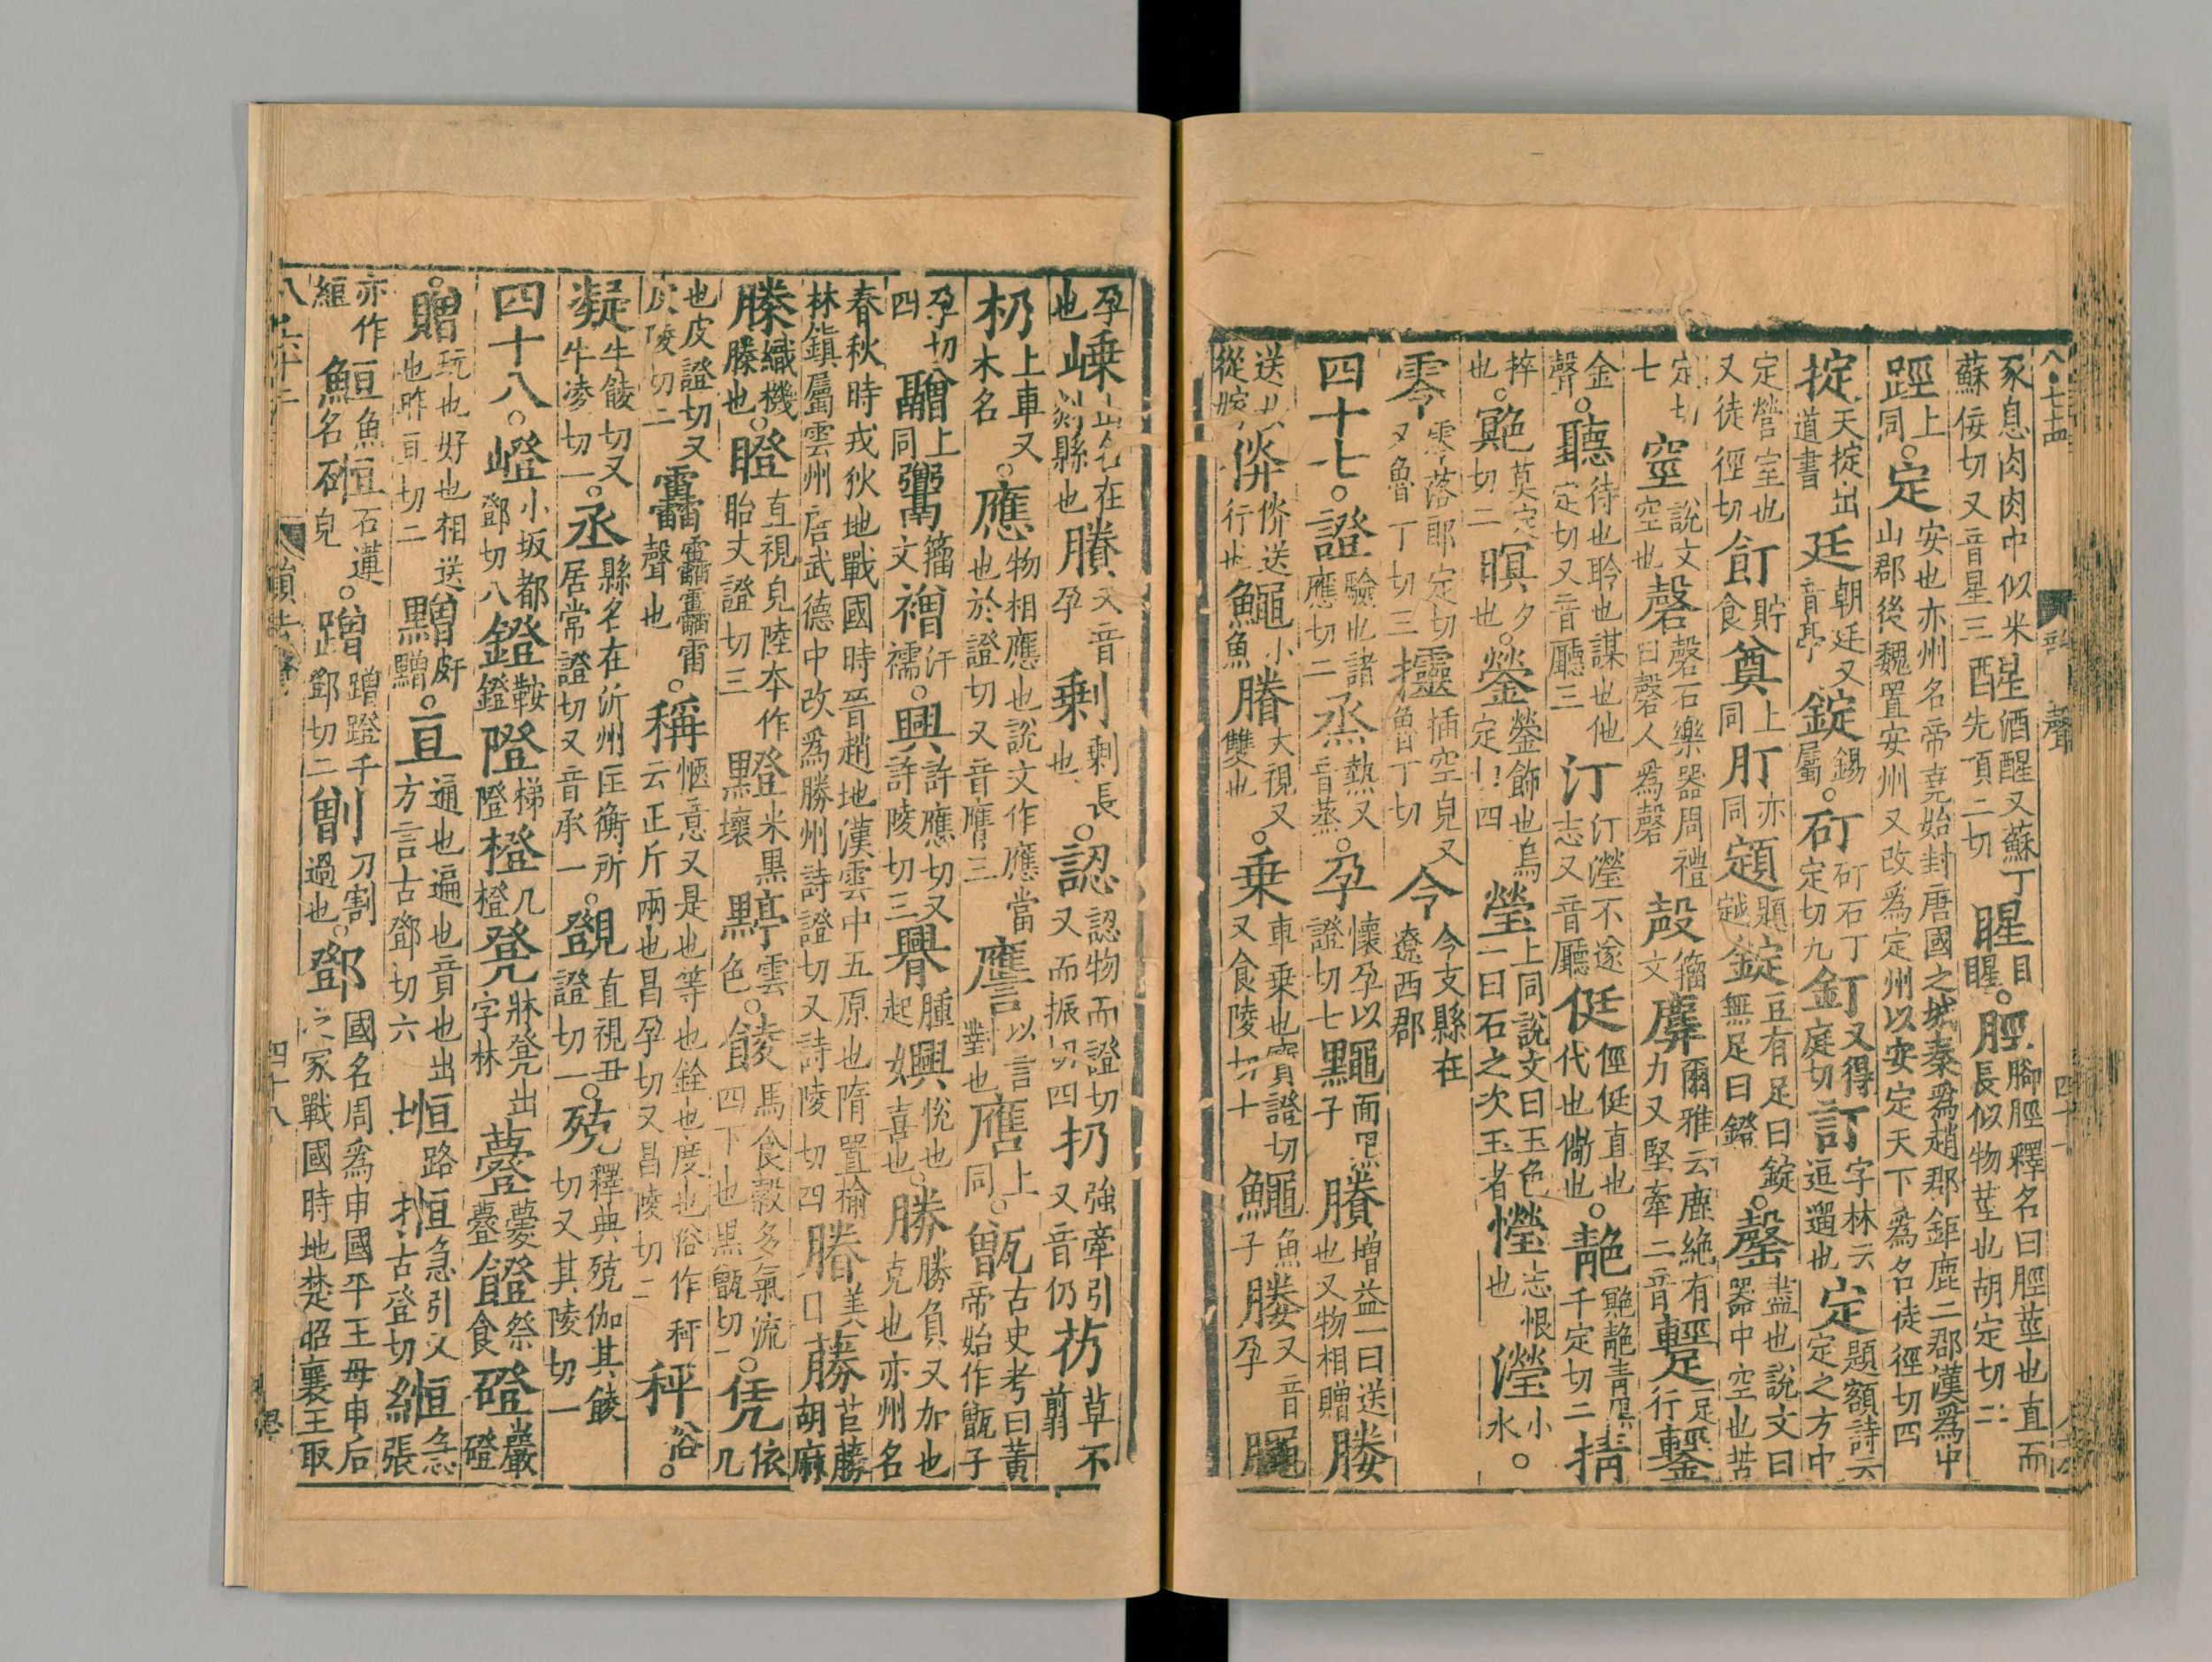 豕息肉肉中似米星酒醒又蘇丁
蘇佞切又音星三醒先頂二切腥目腥。脛腳脛釋名曰脛莖也直而長似物莖也胡定切二
踁上同。定安也亦州名帝堯始封唐國之城秦為趙郡鉅鹿二郡漢為中山郡後魏置安州又改為定州以安定天下為名徒徑切四
掟天掟出道書廷朝廷又音亭錠錫屬。矴矴石丁定切九釘又得庭切訂字林云逗遛也定題額詩云定之方中
定營室也又徒徑切飣貯食奠上同肎亦同顁題顁錠豆有足曰錠無足曰鐙。罄盡也說文曰器中空也苦
定切七窒說文空也磬磬石樂器周禮曰磬人為磬殸籀文麠爾雅云鹿絶有力又堅牽二音𨅔一足行鑋
金聲。聽待也聆也謀也他定切又音廳三汀汀瀅不遂志又音廳侹俓侹直也代也敞也。靘䫤靘青黑千定切二掅
捽也。䫤莫定切二暝夕也。鎣鎣飾也烏定切四瑩上同說文曰玉色一曰石之次玉者𢥏恚恨也瀅小水。
零零落郎定切又魯丁切三㰖插空皃又魯丁切令令支縣在遼西郡
四十七。證驗也諸應切二烝熱又音蒸。孕懷孕以證切七䵴面黑子賸增益一曰送也又物相贈媵
送女從嫁倴倴送行也鱦小魚䁬大視又雙也。乗車乗也實證切又食陵切十鱦魚子塍又音孕䵴
孕也嵊山名在剡縣也賸又音孕剩剩長也。認認物而證切又而振切四扔強牽引又音仍芿草不翦
杒上車又木名。應物相應也說文作應當也於證切又音膺三譍以言對也㒣上同。甑古史考曰黃帝始作甑子
孕切四䰝上同鬻籀文䙢汗襦。興許應切又許陵切三臖腫起嬹悅也喜也。勝勝負又加也克也亦州名
春秋時戎狄地戰國時晉趙地漢雲中五原也隋置榆林鎮屬雲州唐武德中改為勝州詩證切又詩陵切四䁬美目藤苣藤胡麻
榺織機榺也。瞪直視皃陸本作眙丈證切三䵴米黑黑壞䵞雲色。䬋馬食穀多氣流四下也里甑切一。凭依几
也皮證切又皮陵切二䨻䨻䨻雷聲也。稱愜意又是也等也銓也度也俗作秤云正斤兩也昌孕切又昌陵切二秤俗。
凝牛餕切又牛凌切一。丞縣名在沂州匡衡所居常證切又音承一。覴直視丑證切一。殑釋典殑伽其餕切又其陵切一
四十八。嶝小坂都鄧切八鐙鞍鐙隥梯隥橙几橙凳牀凳出字林䔲䕬䔲䔲䭃祭食磴巖磴
。贈玩也好也相送也昨亘切二䵴䵳䵴。亘通也遍也竟也出方言古鄧切六堩路揯急引又古登切緪急張
亦作絚䱍魚名䃂石䃂皃。蹭蹭蹬千鄧切二㔁刀割過也。鄧國名周為申國平王母申后之家戰國時地楚昭襄王取